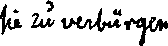 sie zu verbürgen